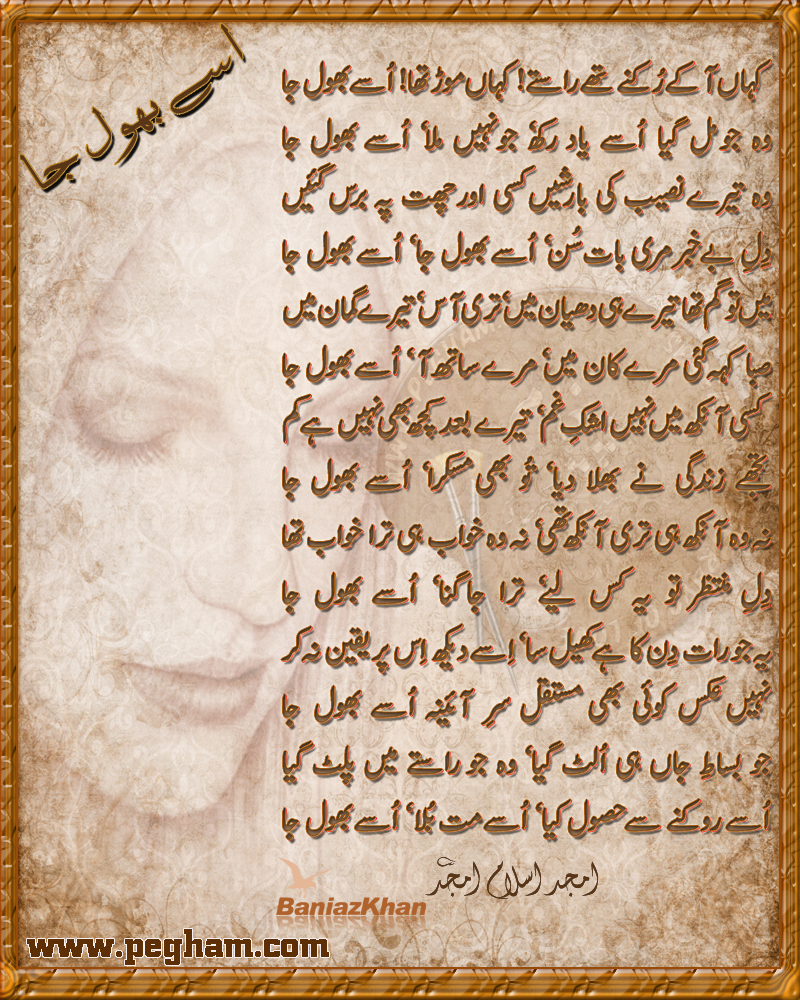 اسے بھول جا
کہاں آ کے رُکنے تھے راستے! کہاں موڑ تھا! اُسے بھول جا
وہ جو مل گیا اُسے یاد رکھ، جو نہیں ملا، اُسے بھول جا
وہ تیرے نصیب کی بارشیں کسی اور چھت پہ برس گئیں
دِلِ بے خبر مری بات سُن، اُسے بھول جا، اُسے بھول جا
میں تو گم تھا تیرے ہی دھیان میں، تری آس، تیرے گمان میں
صبا کہہ گئی مرے کان میں، مرے ساتھ آ، اُسے بھول جا
کسی آنکھ میں نہیں اشکِ غم، تیرے بعد کچھ بھی نہیں ہے کم
تجھے زندگی نے بھلا دیا، تُو بھی مسکرا، اُسے بھول جا
نہ وہ آنکھ ہی تری آنکھ تھی، نہ وہ خواب ہی ترا خواب تھا
دِلِ منتظر تو یہ کس لیے، ترا جاگنا، اُسے بھول جا
یہ جو رات دِن کا ہے کھیل سا، اِسے دیکھ اِس پر یقین نہ کر
نہیں عکس کوئی بھی مستقل سرِ آئینہ اُسے بھول جا
جو بساطِ جاں ہی اُلٹ گیا، وہ جو راستے میں پلٹ گیا
اُسے روکنے سے حصول کیا، اُسے مت بُلا، اُسے بھول جا
امجد اسلام امجدؔ
BaniazKhan
www.pegham.com